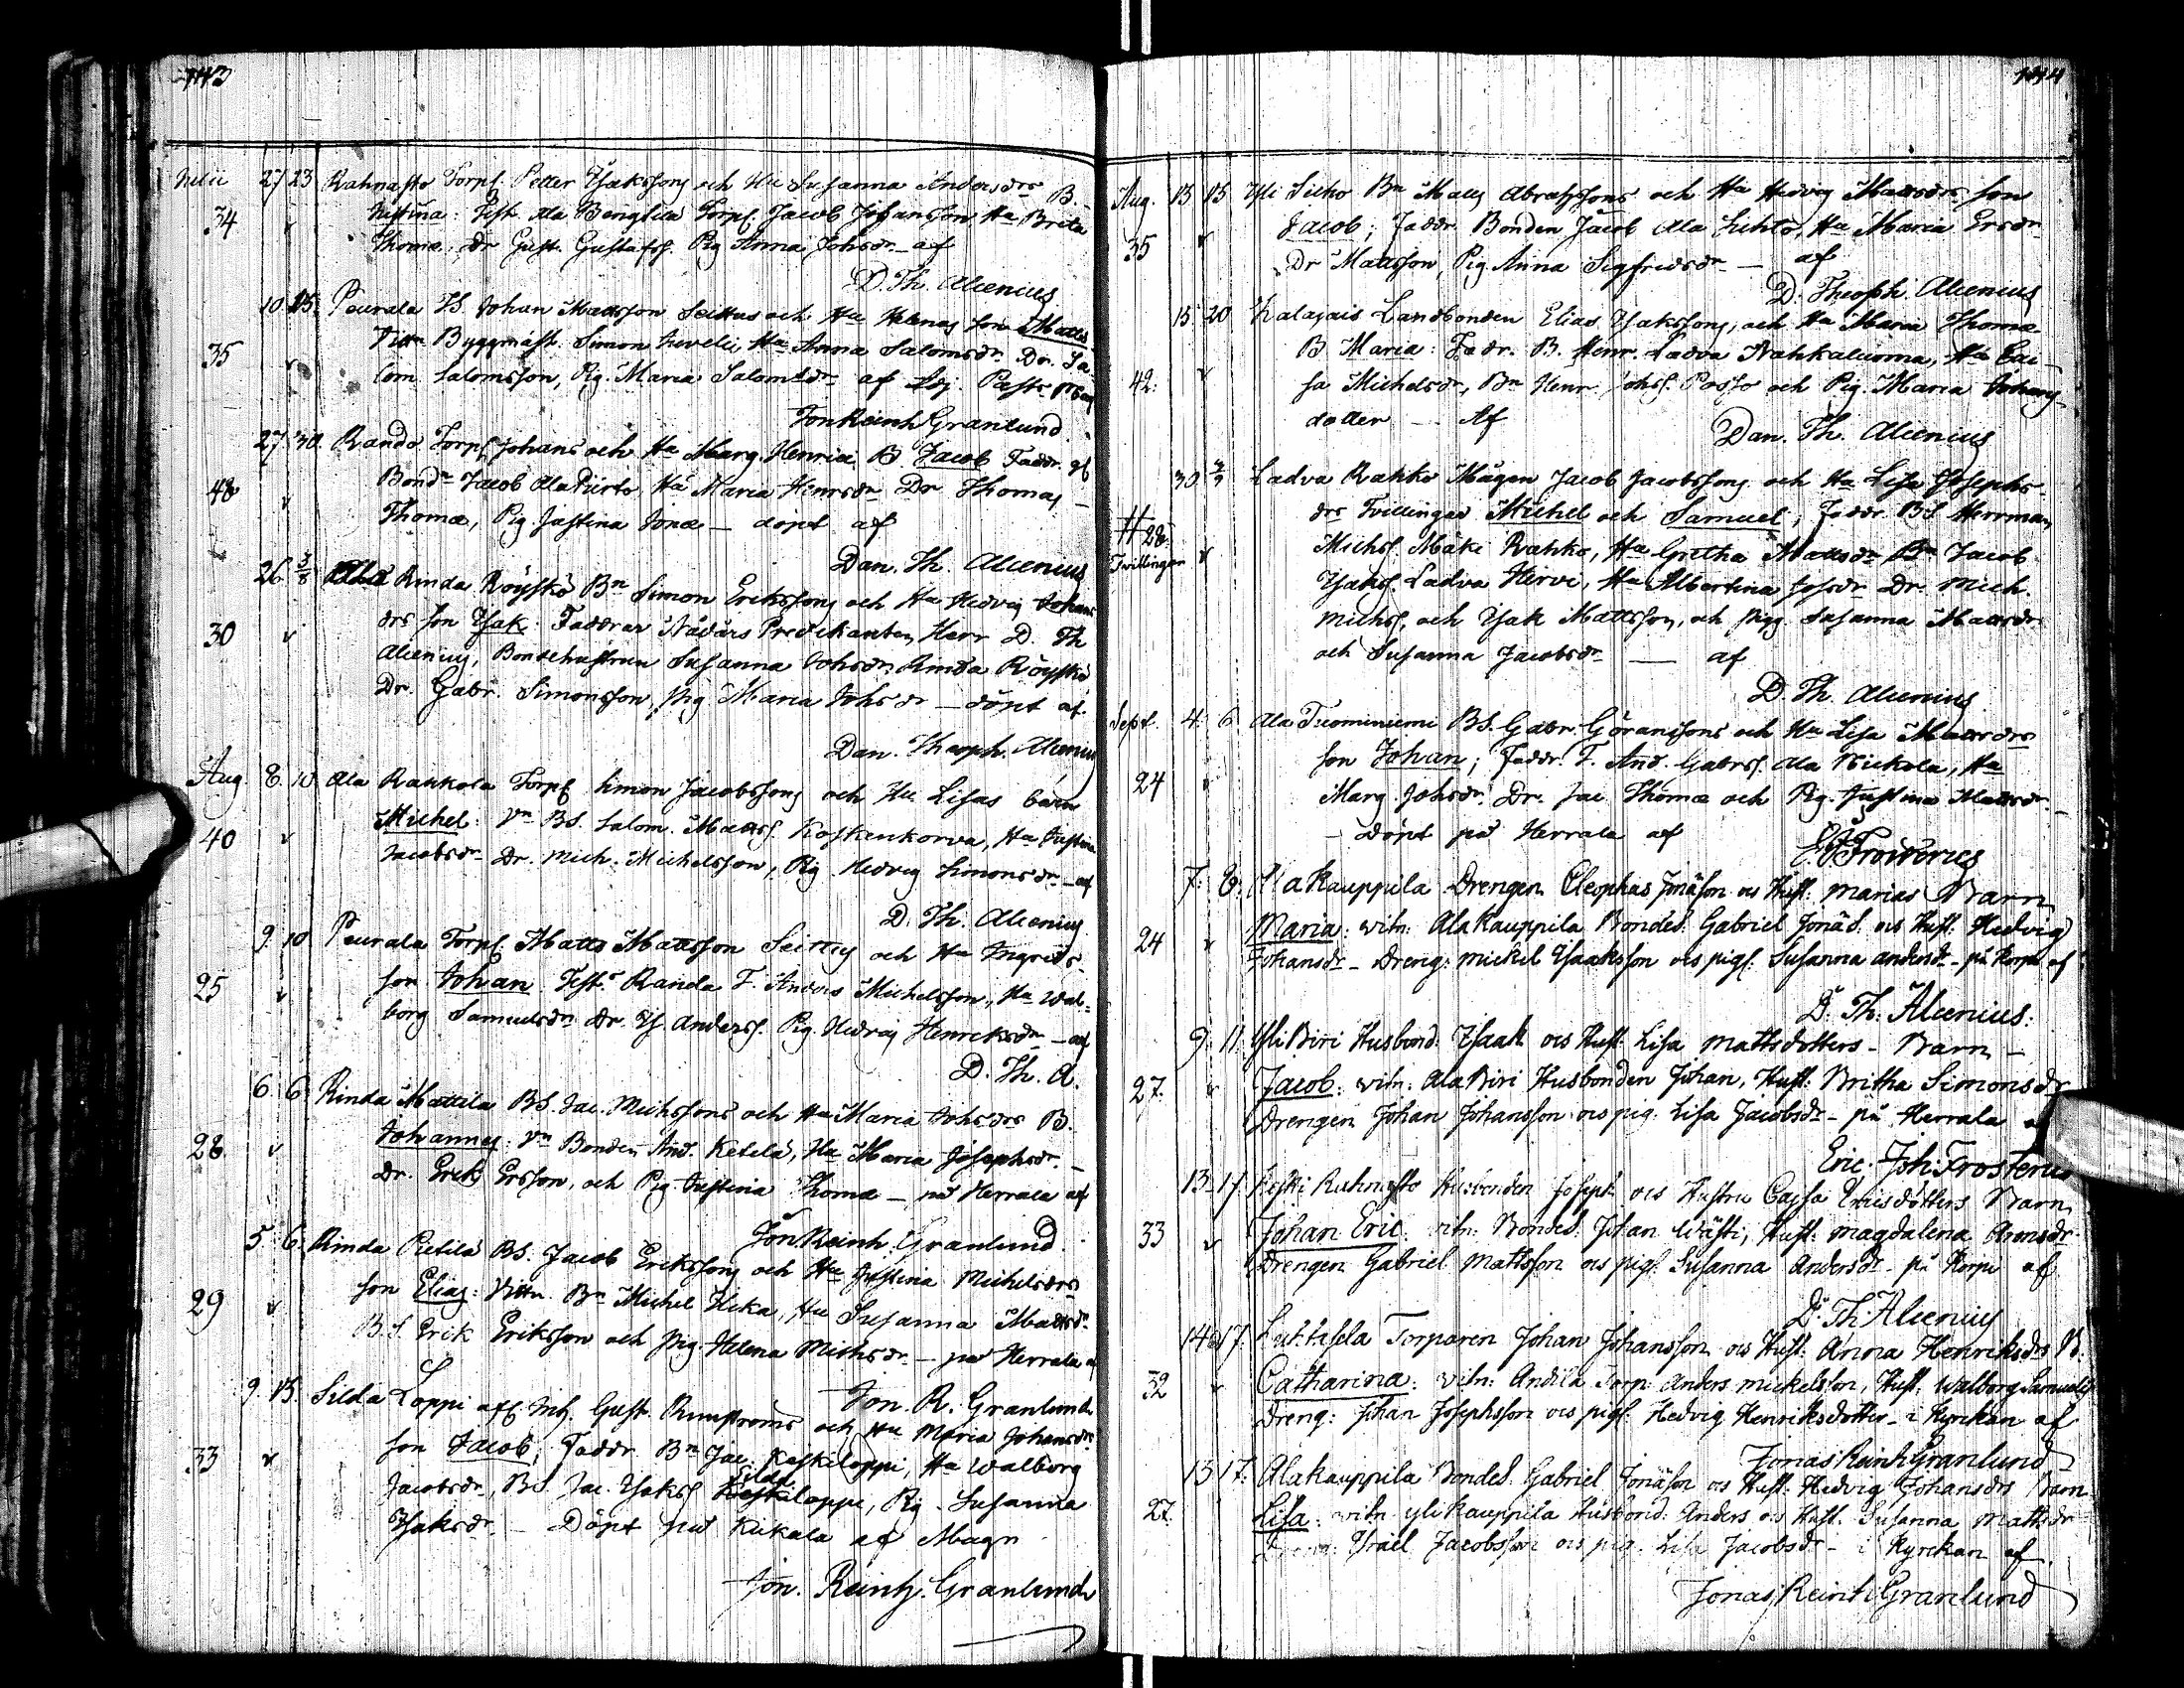 143
Julii 27 23 Rahnasto Torp. Petter Isakssons och Hu Susanna Andersdrs B.
34 v Justina: Test. Ala Bengtila Torp. Jacob Johansson, Ha Brita
Thomæ, Dr Gust. Gustafss. Pig Anna Johsdr - af
D. Th. Alcenius
10 15 Peurala Johan Mattsson Seittus och Hu Helenas son Matts
35 v Vittn Byggmäst. Simon, Ha Anna Salomsdr. Dr. Sa-
lom. Salomsson, Pig. Maria Salomsdr af
Jon Reinh Granlund
27 30 Rando Torp. Johans och Ha Marg. Henrici B. Jacob Faddr.
48 v Bondn Jacob Ala Pirto, Ha Maria Henrsdr Dr Thomas
Thomæ, Pig. Justina Jonæ - döpt af
Dan. Th. Alcenius
26 3/8 Rinda Röyskö Bn Simon Erikssons och Ha Hedvig Johans
30 v drs son Isak: Faddrar Nådårs Predikanten Herr D. Th
Alcenius, Bondehustrun Susanna Johsdr Rinda Röyskö
Dr. Gabr. Simonsson, Pig Maria Johsdr - döpt af
Dan. Theoph. Alcenius
Aug 8 10 Ala Rahkola Torp. Simon Jacobssons och Hu Lisas barn
40 v Michel: Vn BS. Salom. Mattss. Koskenkorva, Ha Justina
Jacobsdr Dr. Mich. Michelsson, Pig Hedvig Simonsdr - af
D. Th. Alcenius
9 10 Peurala Torp. Matts Mattsson Seittus och Hu Ingrids
25 v son Johan. Test. Randa T. Anders Michelsson, Ha Wal-
borg Samuelsdr Dr. Is. Anderss. Pig. Hedvig Henricksdr - af
D. Th. A.
6 6 Rinda Mattila BS. Jac. Michssons och Ha Maria Johsdrs B.
28 v Johannes: Vn Bonden And. Ketelä, Ha Maria Josephsdr. -
Dr. Erik Ersson, och Pig Justina Thomæ - på Herrala af
Jon Reinh. Granlund
5 6 Rinda Pietilä BS. Jacob Erikssons och Hu Justina Michelsdrs
29 v son Elias: Vittn. Bn Michel Ikka, Hu Susanna Mattsdr
BS. Erik Eriksson och Pig. Helena Michsdr - på Herrala af
Jon. R. Granlund
9 13 Silda Loppi Gust. Runströms och Hu Maria Johansdrs
33 v son Jacob, Faddr. Bn Jac. Keskiloppi, Ha Walborg
Jacobsdr, BS. Jac. Isakss Silda loppi, Pig. Susanna
Isaksdr - Döpt på Kiikala af Magn
Jon. Reinh. Granlund
144
Aug. 13 15 Yli Sieho Bn Matts Abrahssons och Ha Hedvig Mattsdrs son
35 v Jacob; Faddr. Bonden Jacob Ala Luhto, Ha Maria Ersdr
Dr Mattsson, Pig. Anna Sigfridsdr - af
D. Theoph. Alcenius
15 20 Kalajais Landbonden Elias Isakssons, och Ha Maria Thomæ
42 v B Maria: Fadr. B. Henr. Ladva Nahkaluoma, Ha Cai-
sa Michelsdr, Bn Henr. Johss. Passo och Pig. Maria Johans
dotter - Af
Dan. Th. Alcenius
30 3/9 Ladva Rahko Mågen Jacob Jacobssons och Ha Lisa Josephs-
28 Tvillingar v drs Tvillingar Michel och Samuel; Faddr. BS Herrman
Michss. Mäki Rahko, Ha Gretha Mattsdr Bn Jacob
Isakss. Ladva Hirvi, Ha Albertina Johsdr Dr. Mich.
Michss. och Isak Mattsson, och Pigg. Susanna Mattsdr
och Susanna Jacobsdr - af
D. Th. Alcenius
Sept. 4 6 Ala Tuominiemi BS. Gabr. Göranssons och Hu Lisa Mattsdrs
24 v son Johan; Faddr. T. And. Gabrss. Ala Kiikola, Ha
Marg. Johsdr, Dr. Jac Thomæ och Pig. Justina Mattsdr -
- Döpt på Herrala af
E J Frosterus
7. 8. Ala Kauppila Drengen Cleophas Jonäson ocs Hust: Marias Barn
24 v Maria: witn: AlaKauppila Bondes. Gabriel Jonäs. ocs Hust: Hedvig
Johansdr - Dreng: Mickel Isaaksson ocs pig: Susanna Andersdr - på Korpi af
D. Th. Alcenius:
9. 11. Yli Biri Husbond. Isaak ocs Hust. Lisa Mattsdotters - Barn -
27. v Jacob: witn: Ala Biri Husbonden Johan, Hust: Britha Simonsdr
Drengen Johan Johansson ocs pig. Lisa Jacobsdr - på Herrala af
Eric. Joh: Frosterus
13 17 Keski Rahnasto Husbonden Joseph ocs Hustru Cajsa Ericsdotters Barn
33 v Johan Eric. witn: Bondes. Johan Wästi, Hust: Magdalena Aronsdr
Drengen Gabriel Mattsson ocs pig. Susanna Andersdr - på Korpi af
D. Th. Alcenius
14 17. Luttisela Torparen Johan Johansson ocs Hust: Anna Henriksdrs B.
32 v Catharina: witn: Andila Torp: Anders Mickelsson, Hust: Walborg Samuelsdr
Dreng: Johan Josephsson ocs pig. Hedvig Henriksdotter - i Kyrckan af
Jonas Reinh Granlund
13 17. AlaKauppila Bondes. Gabriel Jonäson ocs Hust: Hedvig Johansdrs Barn
27. Lisa: witn yli Kauppila Husbond. Anders ocs Hust. Susanna Mattsdr
Israel Jacobsson ocs pig. Lisa Jacobsdr - i Kyrckan af.
Jonas Reinh Granlund